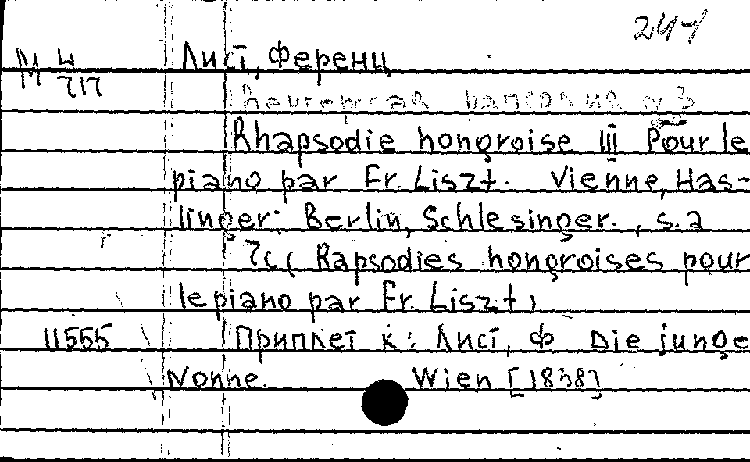 244
М 4/717 Лист, Ференц
Венгерская рапсодия № 3
Rhapsodie hongroise III Pour le
piano par Fr. Liszt. Vienne, Has-
linger: Berlin, Schlesinger., s.a
7c ( Rapsodies hongroises pour
le piano par Fr. Liszt)
11555 Приплет к: Лист, Ф. Die junge
Nonne. Wien [1838]